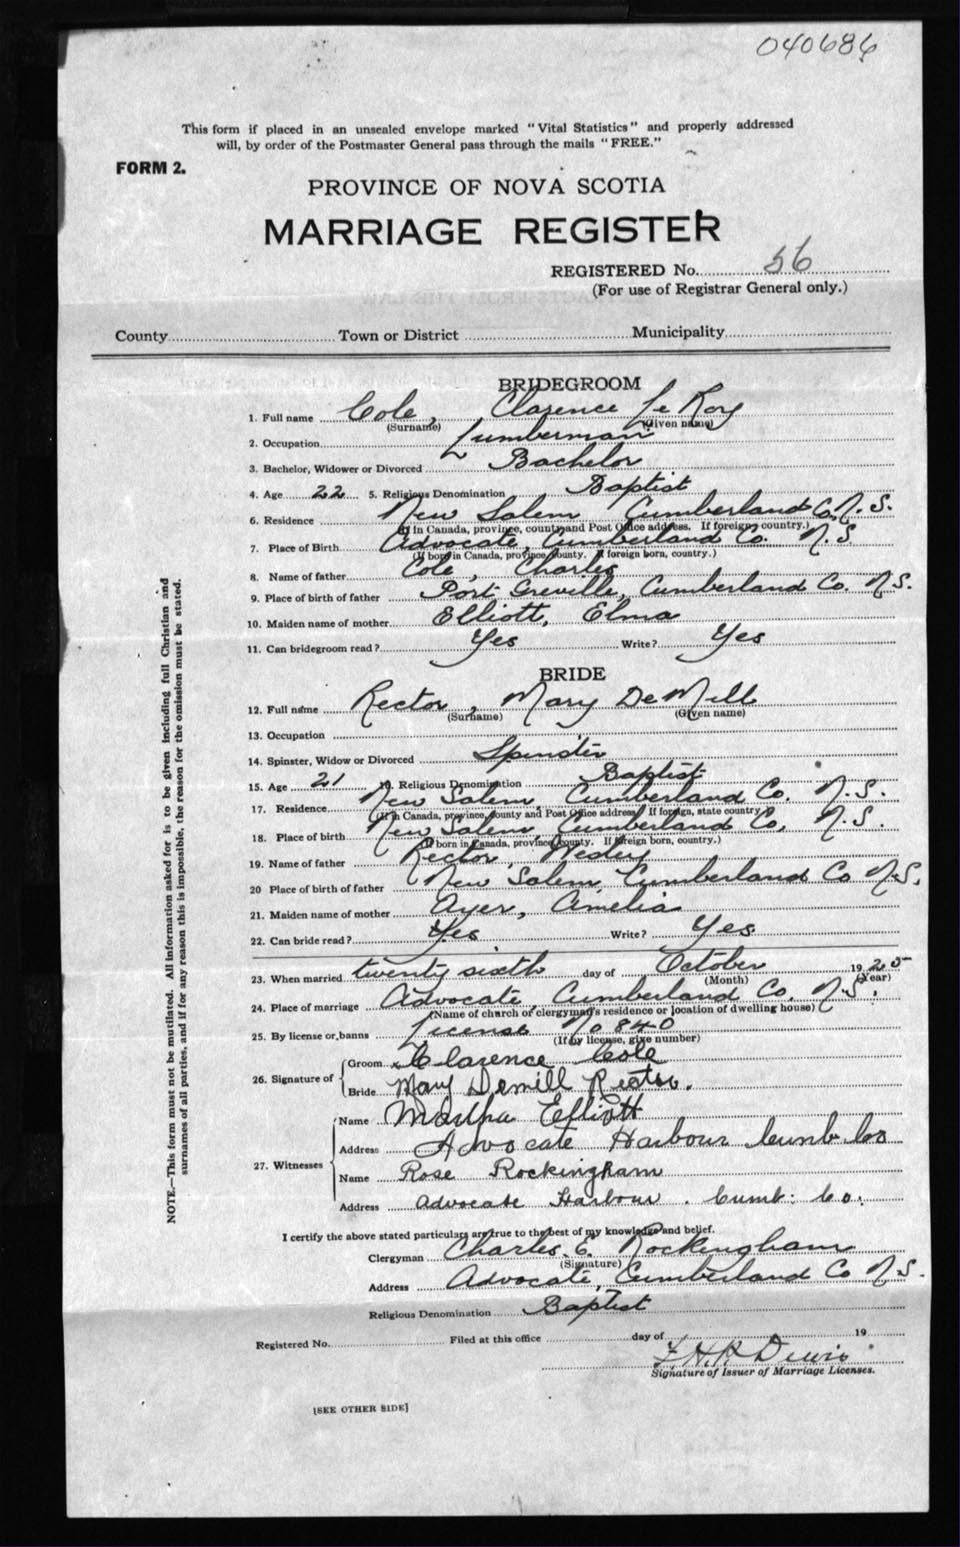 040686
This form if placed in an unsealed envelope marked "Vital Statistics" and properly addressed
will, by order of the Postmaster General pass through the mails "FREE."
FORM 2.
PROVINCE OF NOVA SCOTIA
MARRIAGE REGISTER
REGISTERED No. 56
(For use of Registrar General only.)
County Town or District Municipality
BRIDEGROOM
1. Full name Cole, Clarence Le Roy
(Surname) (Given name)
2. Occupation Lumberman
3. Bachelor, Widower or Divorced Bachelor
4. Age 22 5. Religious Denomination Baptist
6. Residence New Salem Cumberland Co, N.S.
(If in Canada, province, county and Post Office address. If foreign, country.)
7. Place of Birth Advocate, Cumberland Co. N.S
(If born in Canada, province, county. If foreign born, country.)
8. Name of father Cole, Charles
9. Place of birth of father Port Greville, Cumberland Co. N.S.
10. Maiden name of mother Elliott, Elma
11. Can bridegroom read? Yes Write? Yes
BRIDE
12. Full name Rector, Mary DeMill
(Surname) (Given name)
13. Occupation
14. Spinster, Widow or Divorced Spinster
15. Age 21 16. Religious Denomination Baptist
17. Residence New Salem, Cumberland Co. N.S.
(If in Canada, province, county and Post Office address. If foreign, state country.)
18. Place of birth New Salem, Cumberland Co, N.S.
(If born in Canada, province, county. If foreign born, country.)
19. Name of father Rector, Wesley
20 Place of birth of father New Salem, Cumberland Co N.S.
21. Maiden name of mother Ayer, Amelia
22. Can bride read? Yes Write? Yes
23. When married twenty sixth day of October 1925
(Month) (Year)
24. Place of marriage Advocate, Cumberland Co. N.S.
(Name of church or clergyman's residence or location of dwelling house)
25. By license or banns License No 840
(If by license, give number)
26. Signature of Groom x Clarence Cole
Bride Mary Demill Rector.
27. Witnesses Name Martha Elliott
Address Advocate Harbour Cumb Co
Name Rose Rockingham
Address Advocate Harbour. Cumb: Co.
I certify the above stated particulars are true to the best of my knowledge and belief.
Clergyman Charles. E. Rockingham
(Signature)
Address Advocate, Cumberland Co N.S.
Religious Denomination Baptist
Registered No. Filed at this office day of 19
Signature of Issuer of Marriage Licenses.
[SEE OTHER SIDE]
NOTE.—This form must not be mutilated. All information asked for is to be given including full Christian and
surnames of all parties, and if for any reason this is impossible, the reason for the omission must be stated.